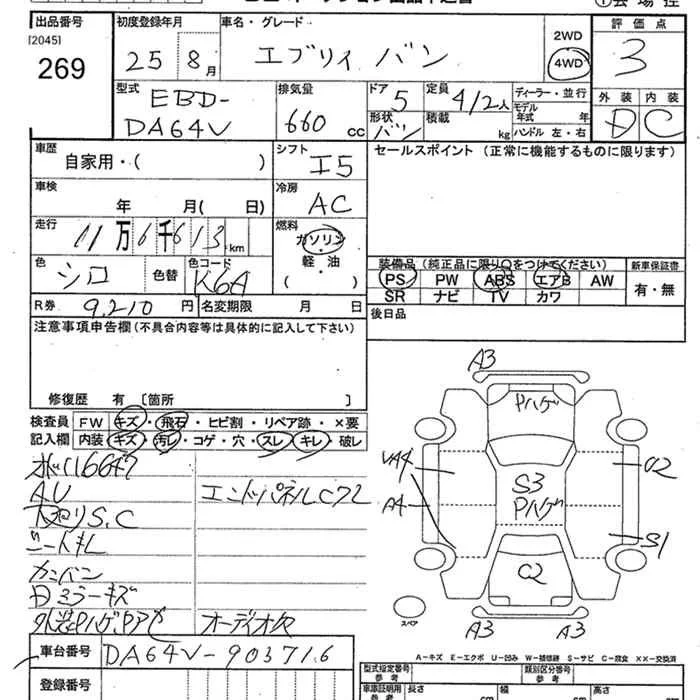 出品番号
[2045]
269
初度登録年月
25 8月
車名・グレード
エブリィ バン
2WD
4WD
評価点
3
外装 内装
D C
型式
EBD-
DA64V
排気量
660 cc
ドア
5
形状
バン
定員
4/2人
積載
kg
ディーラー・並行
モデル年式 年
ハンドル 左・右
車歴
自家用・( )
シフト
I5
セールスポイント (正常に機能するものに限ります)
車検
年 月( 日)
冷房
AC
走行
11万6千613km
燃料
ガソリン
・
軽・油
( )
色
シロ
色替
色コード
K6A
装備品 (純正品に限り○をつけてください)
PS PW ABS エアB AW
SR ナビ TV カワ
新車保証書
有・無
R券 9,210円
名変期限 月 日
後日品
注意事項申告欄 (不具合内容等は具体的に記入して下さい)
修復歴 有 〔箇所 〕
検査員記入欄
FW キズ・飛石・ヒビ割・リペア跡・×要
内装 キズ・汚レ・コゲ・穴・スレ・キレ・破レ
AU
エンドパネルC72
S.C
シートキレ
カンバン
日ミラーキズ
外装Pハゲ、Pアセ
オーディオ欠
A3
Pハゲ
A4
S3
Pハゲ
S1
C2
スペア
A3
A3
車台番号
DA64V-903716
登録番号
A-キズ E-エクボ U-凹み W-補修跡 S-サビ C-腐食 XX-交換済
型式指定番号
類別区分番号
車庫証明用
長さ cm
幅 cm
高さ cm